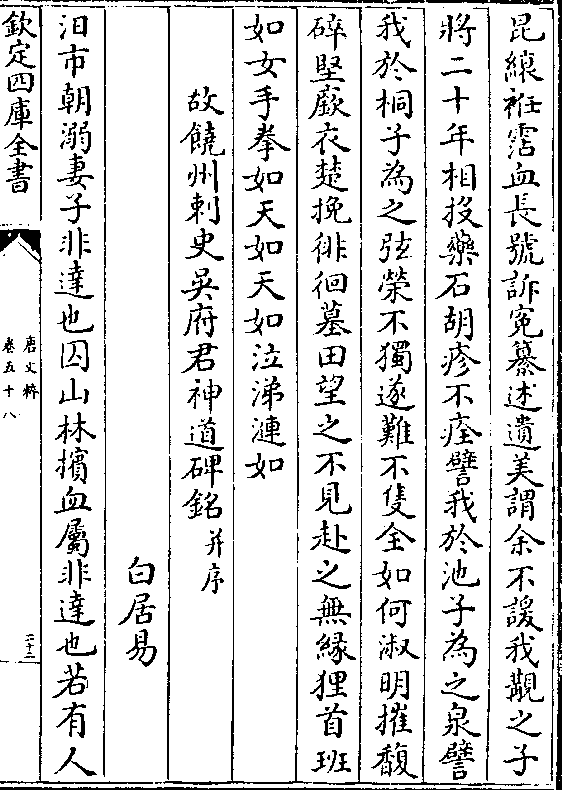 昆纕袵霑血長號訴寃纂述遺美謂余不諼我覯之子
將二十年相投藥石胡疹不痊譬我於池子為之泉譬
我於桐子為之弦榮不獨遂難不隻全如何淑明摧馥
碎堅厥衣楚挽徘徊墓田望之不見赴之無緣狸首班
如女手拳如天如天如泣涕漣如
故饒州刺史吳府君神道碑銘并序
白居易
汨市朝溺妻子非達也囚山林擯血屬非達也若有人
欽定四庫全書
唐文粹
卷五十八
二十三